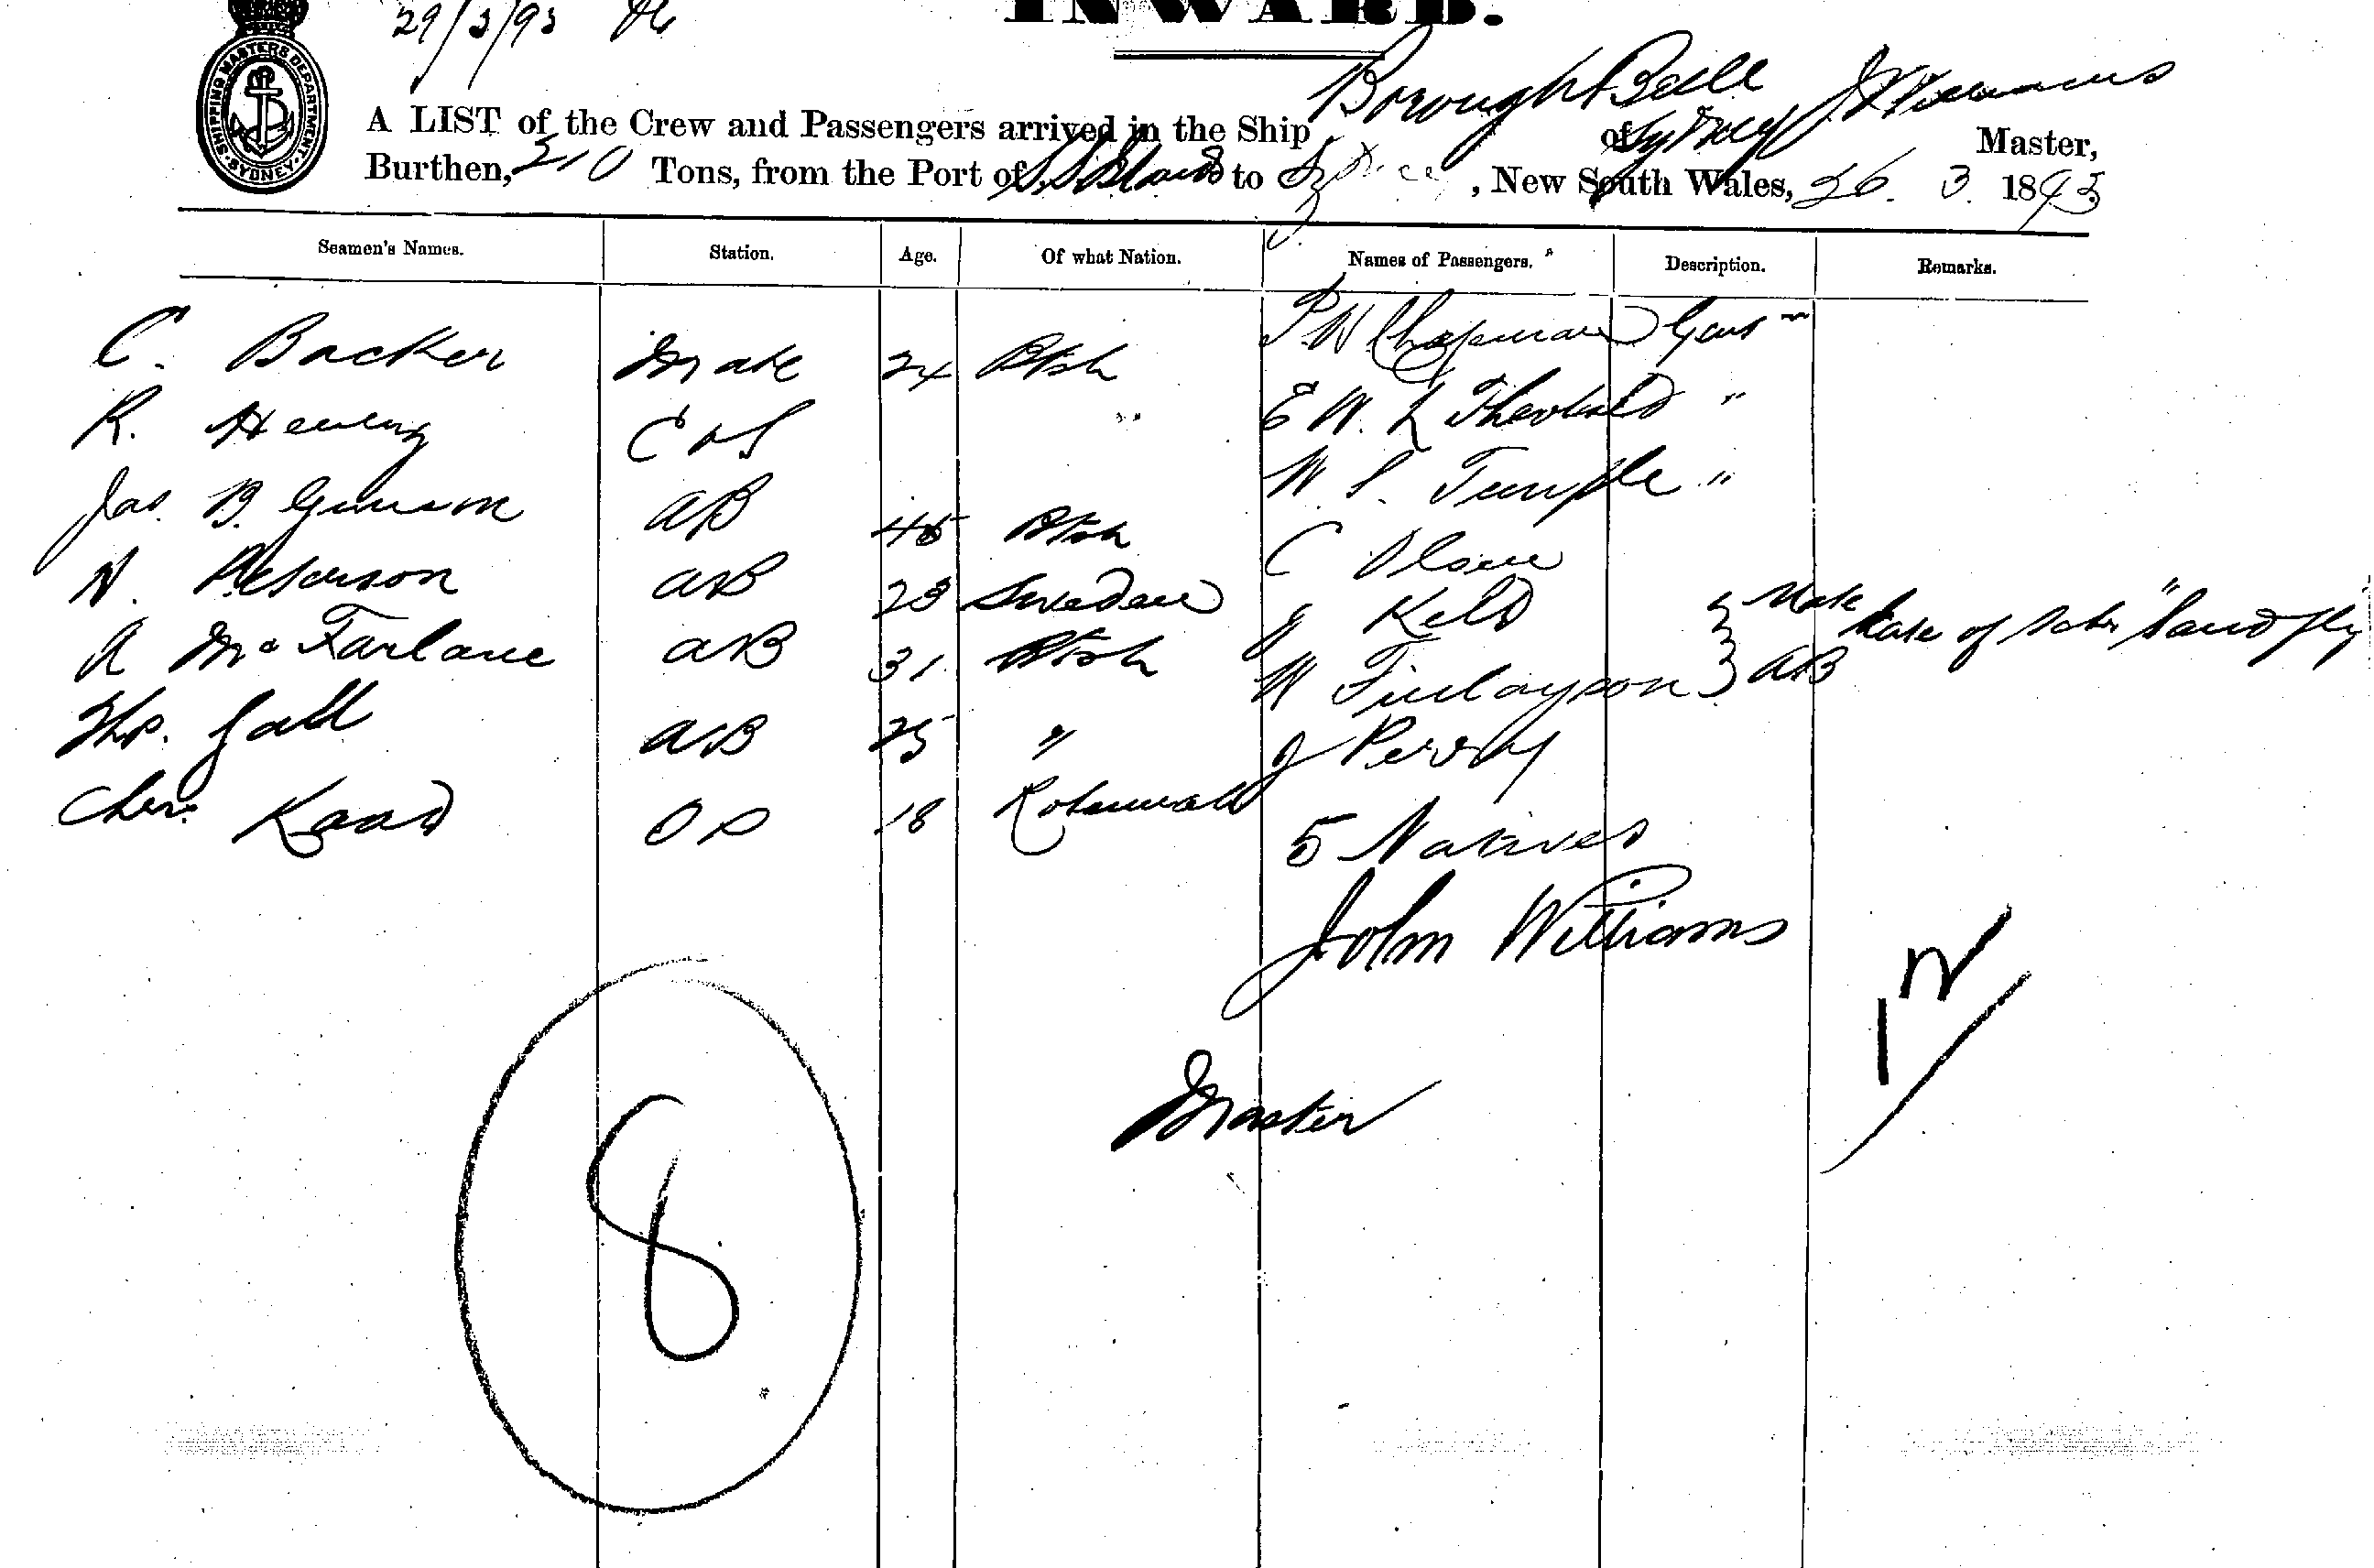 29/3/93
INWARD.
SHIPPING MASTERS DEPARTMENT SYDNEY
A LIST of the Crew and Passengers arrived in the Ship Borough Bell of Sydney J Williams Master,
Burthen, 210 Tons, from the Port of S. S. Islands to Sydney, New South Wales, 26. 3. 1893
Seamen's Names. Station. Age. Of what Nation. Names of Passengers. Description. Remarks.
C. Backer Mate 24 Btsh P. W Chapman Gent
R. C & S " E W. L Theobald "
Jas. B. AB 45 Btsh W S. Temple "
N. Peterson AB 23 Sweden C Olsen
A McFarlane AB 31 Btsh J Keld Mate late of Schr "Sandfly"
W Finlayson AB
Ths. Gall AB 25 " J Perry
Chr. Kaad OS 18 5 Natives
John Williams
Master
8
12